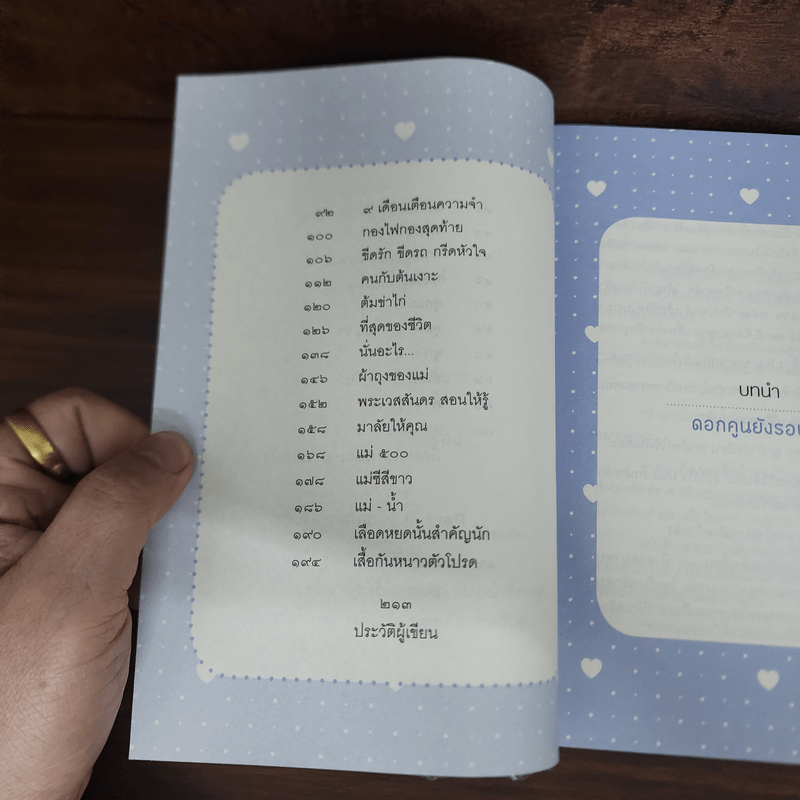 ๙๒ ๙ เดือนเตือนความจำ
๑๐๐ กองไฟกองสุดท้าย
๑๐๖ ขีดรัก ขีดรถ กรีดหัวใจ
๑๑๒ คนกับต้นเงาะ
๑๒๐ ต้มข่าไก่
๑๒๖ ที่สุดของชีวิต
๑๓๘ นั่นอะไร...
๑๔๖ ผ้าถุงของแม่
๑๕๒ พระเวสสันดร สอนให้รู้
๑๕๘ มาลัยให้คุณ
๑๖๘ แม่ ๕๐๐
๑๗๘ แม่ชีสีขาว
๑๘๖ แม่ - น้ำ
๑๙๐ เลือดหยดนั้นสำคัญนัก
๑๙๔ เสื้อกันหนาวตัวโปรด
๒๑๓
ประวัติผู้เขียน
บทนำ
ดอกคูนยังรอ